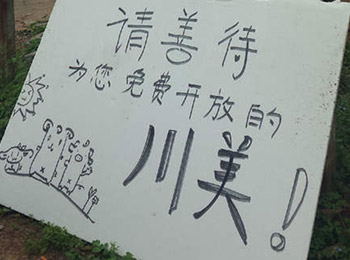 请善待
为您免费开放的
川美!